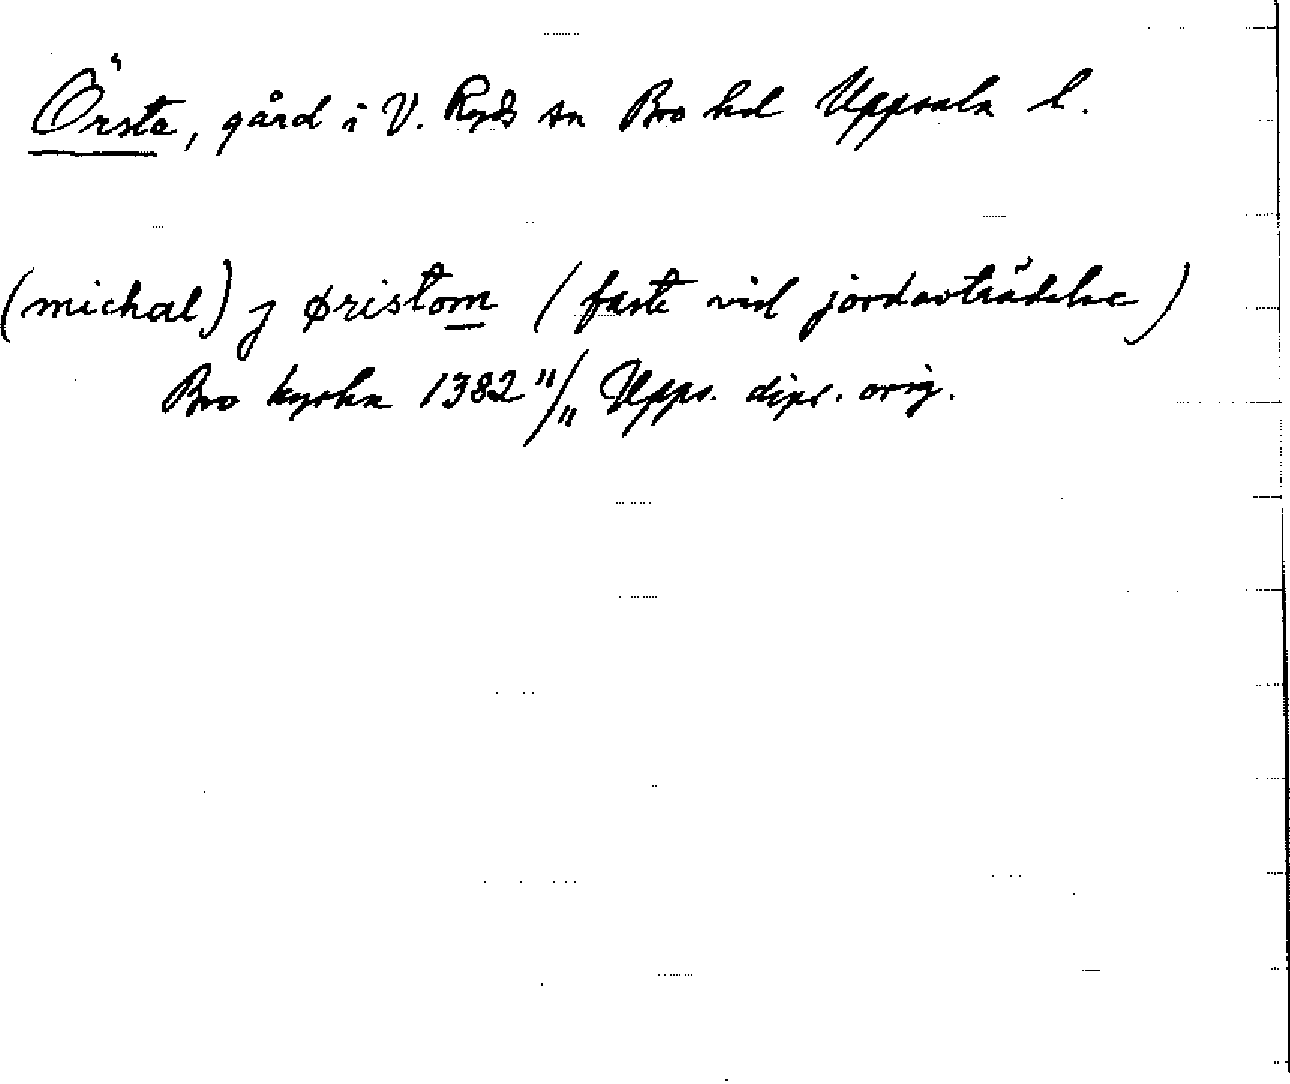 Örsta, gård i V. Ryds sn Bro hd Uppsala l.
(michal) j øristom (faste vid jordavträdelse)
Bro kyrka 1382 11/11 Upps. dipl. orig.